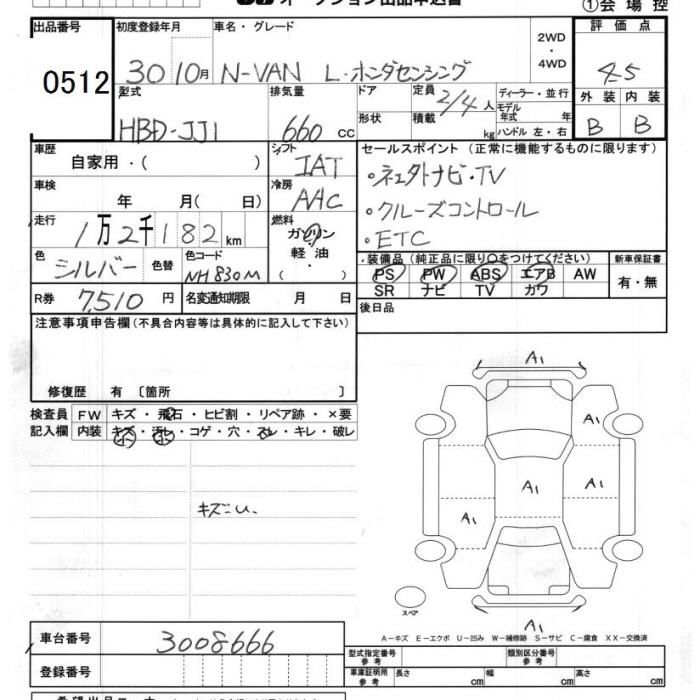 オークション出品申込書
①会場控
出品番号
0512
初度登録年月
30 10月
車名・グレード
N-VAN L・ホンダセンシング
2WD
・
4WD
評価点
4.5
型式
HBD-JJ1
排気量
660 cc
ドア
形状
定員
2/4人
積載
kg
ディーラー・並行
モデル年式 年
ハンドル 左・右
外装
B
内装
B
車歴
自家用・( )
シフト
IAT
セールスポイント (正常に機能するものに限ります)
・ネェタトナビ・TV
・クルーズコントロール
・ETC
車検
年 月( 日)
冷房
AAC
走行
1万2千182km
燃料
ガソリン
軽油
・( )
色
シルバー
色替
色コード
NH830M
装備品 (純正品に限り○をつけてください)
PS PW ABS エアB AW
SR ナビ TV カワ
新車保証書
有・無
R券
7,510円
名変通知期限 月 日
後日品
注意事項申告欄 (不具合内容等は具体的に記入して下さい)
修復歴 有 〔箇所 〕
検査員
記入欄
FW キズ・飛石・ヒビ割・リペア跡・×要
内装 キズ・汚レ・コゲ・穴・スレ・キレ・破レ
キズ小.
A1
A1
A1
A1
A1
A1
スペア
A－キズ E－エクボ U－凹み W－補修跡 S－サビ C－腐食 XX－交換済
車台番号
3008666
登録番号
型式指定番号
参考
類別区分番号
参考
車庫証明用
参考
長さ cm
幅 cm
高さ cm
希望出品コーナー